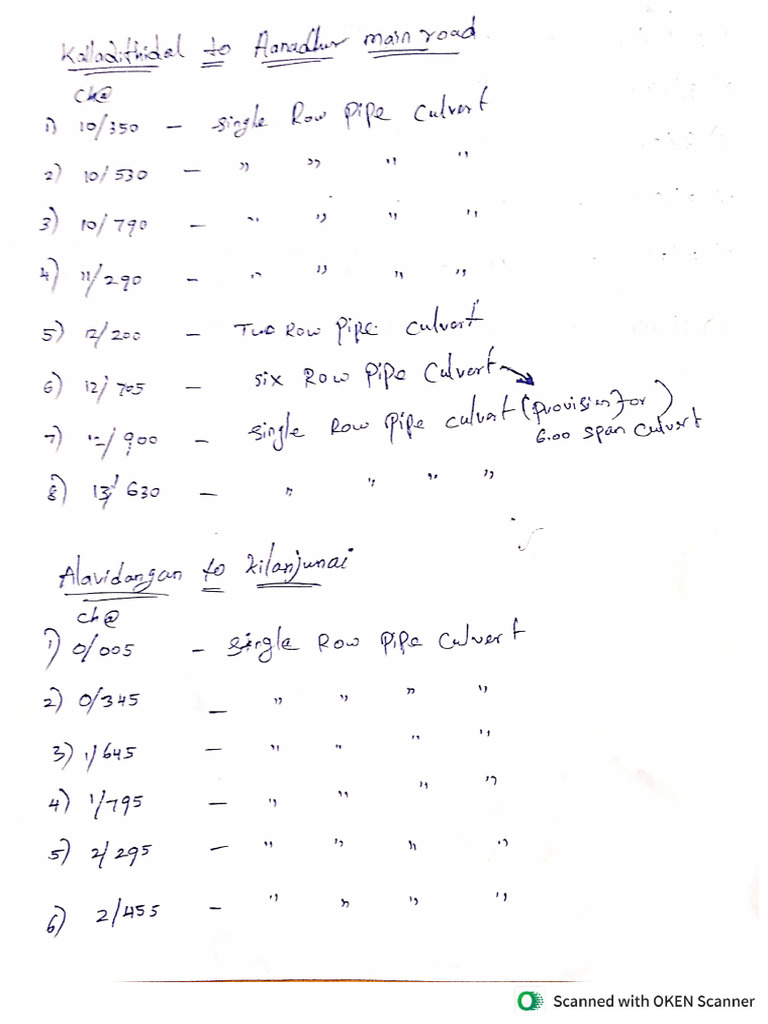 Kalladithidal to Aanadhur main road
Ch@
1) 10/350 - Single Row Pipe Culvert
2) 10/530 - " " " "
3) 10/790 - " " " "
4) 11/290 - " " " "
5) 12/200 - Two Row Pipe Culvert
6) 12/705 - Six Row Pipe Culvert
7) 12/900 - Single Row Pipe Culvert (provision for)
6.00 span culvert
8) 13/630 - " " " "
Alavidangan to Kilanjunai
Ch@
1) 0/005 - Single Row Pipe Culvert
2) 0/345 - " " " "
3) 1/645 - " " " "
4) 1/795 - " " " "
5) 2/295 - " " " "
6) 2/455 - " " " "
Scanned with OKEN Scanner